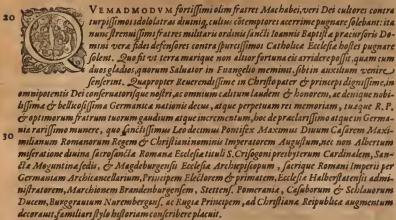 20
QVEMADMODVM fortissimi olim fratres Machabei, veri Dei cultores contra
turpissimos idololatras diuiniq; cultus cōtemptores acerrime pugnare solebant: ita
nunc strenuissimi fratres militaris ordinis sancti Ioannis Baptistæ præcursoris Do-
mini vera fidei defensores contra spurcissimos Catholicæ Ecclesiæ hostes pugnare
solent. Quo fit vt terra marique non alitor fortuna eis arridere possit, quam cum
duos gladios, quorum Saluator in Euangelio meminit, sibi in auxilium venire
senserint. Quapropter Reuerendissime in Christo pater & princeps dignissime, in
omnipotentis Dei conseruatorisque nostri, ac omnium cælitum laudem & honorem, ac denique nobi-
lissimæ & bellicosissimæ Germanicæ nationis decus, atque perpetuam rei memoriam, tuaque R.P.
& optimorum fratrum tuorum gaudium atque incrementum, hoc de præclarissimo atque in Germa-
30
nia rarissimo munere, quo sanctissimus Leo decimus Pontifex Maximus Diuum Cæsarem Maxi-
milianum Romanorum Regem & Christiani nominis Imperatorem Augustum, nec non Albertum
miseratione diuina Sacrosanctæ Romanæ Ecclesiæ tituli S. Crisogoni presbyterum Cardinalem, San-
ctæ Moguntinæ sedis, & Magdeburgensis Ecclesiæ Archiepiscopum, sacrique Romani Imperij per
Germaniam Archicancellarium, Principem Electorem & primatem, Ecclesiæ Halberstatensis admi-
nistratorem, Marchionem Brandenburgensem, Stettens. Pomeraniæ, Casuborum & Schlauorum
Ducem, Burggrauium Nurembergens. ac Rugiæ Principem, ad Christianæ Reipublicæ augmentum
decorauit, familiari stylo historiam conscribere placuit.